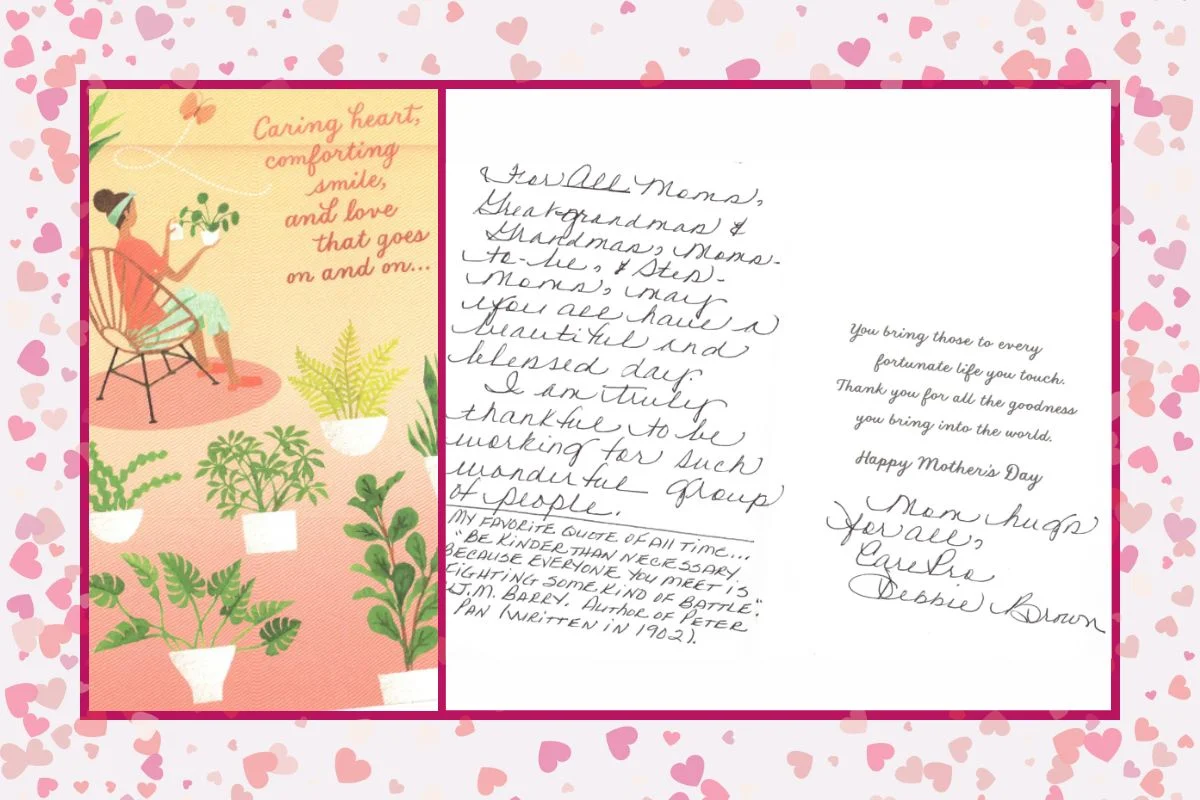 Caring heart,
comforting
smile,
and love
that goes
on and on...
For All Moms,
Great-grandmas &
Grandmas, Moms-
to-be, & Step-
Moms, may
you all have a
beautiful and
blessed day.
I am truly
thankful to be
working for such
wonderful group
of people.
MY FAVORITE QUOTE OF All TIME...
"BE KINDER THAN NECESSARY.
BECAUSE EVERYONE YOU MEET IS
FIGHTING SOME KIND OF BATTLE".
J.M. BARRY. AUTHOR OF PETER
PAN (WRITTEN IN 1902).
You bring those to every
fortunate life you touch.
Thank you for all the goodness
you bring into the world.
Happy Mother's Day
Mom hugs
for all,
CarePro
Debbie Brown